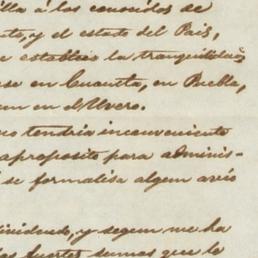 illa á los conocidos de
to, y el estado del Pais,
e establece la tranquilidad
se en Cuautla, en Puebla,
um en el Uvero.
no tendria inconveniente
aproposito para adminis-
i se formalisa algun avío
ividendo, y segun me ha
las fuertes sumas que le